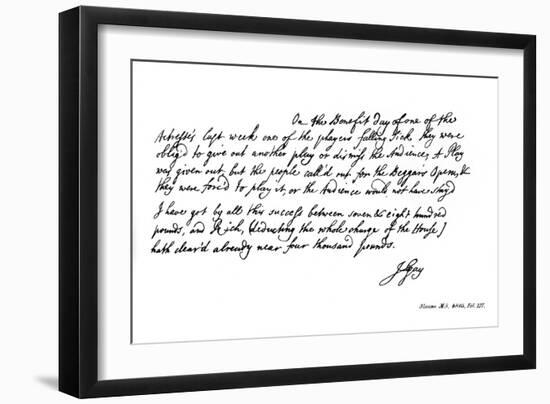 On the Benefit day of one of the
Actresse's last week one of the players falling sick they were
oblig'd to give out another play or dismiss the Audience, A Play
was given out, but the people call'd out for the Beggar's Opera, &
they were forc'd to play it, or the Audience would not have stayd
I have got by all this success between seven & eight hundred
pounds, and Rich, (deducting the whole charge of the House)
hath clear'd already near four thousand pounds.
J Gay
Sloane M.S. 4045, Fol. 127.